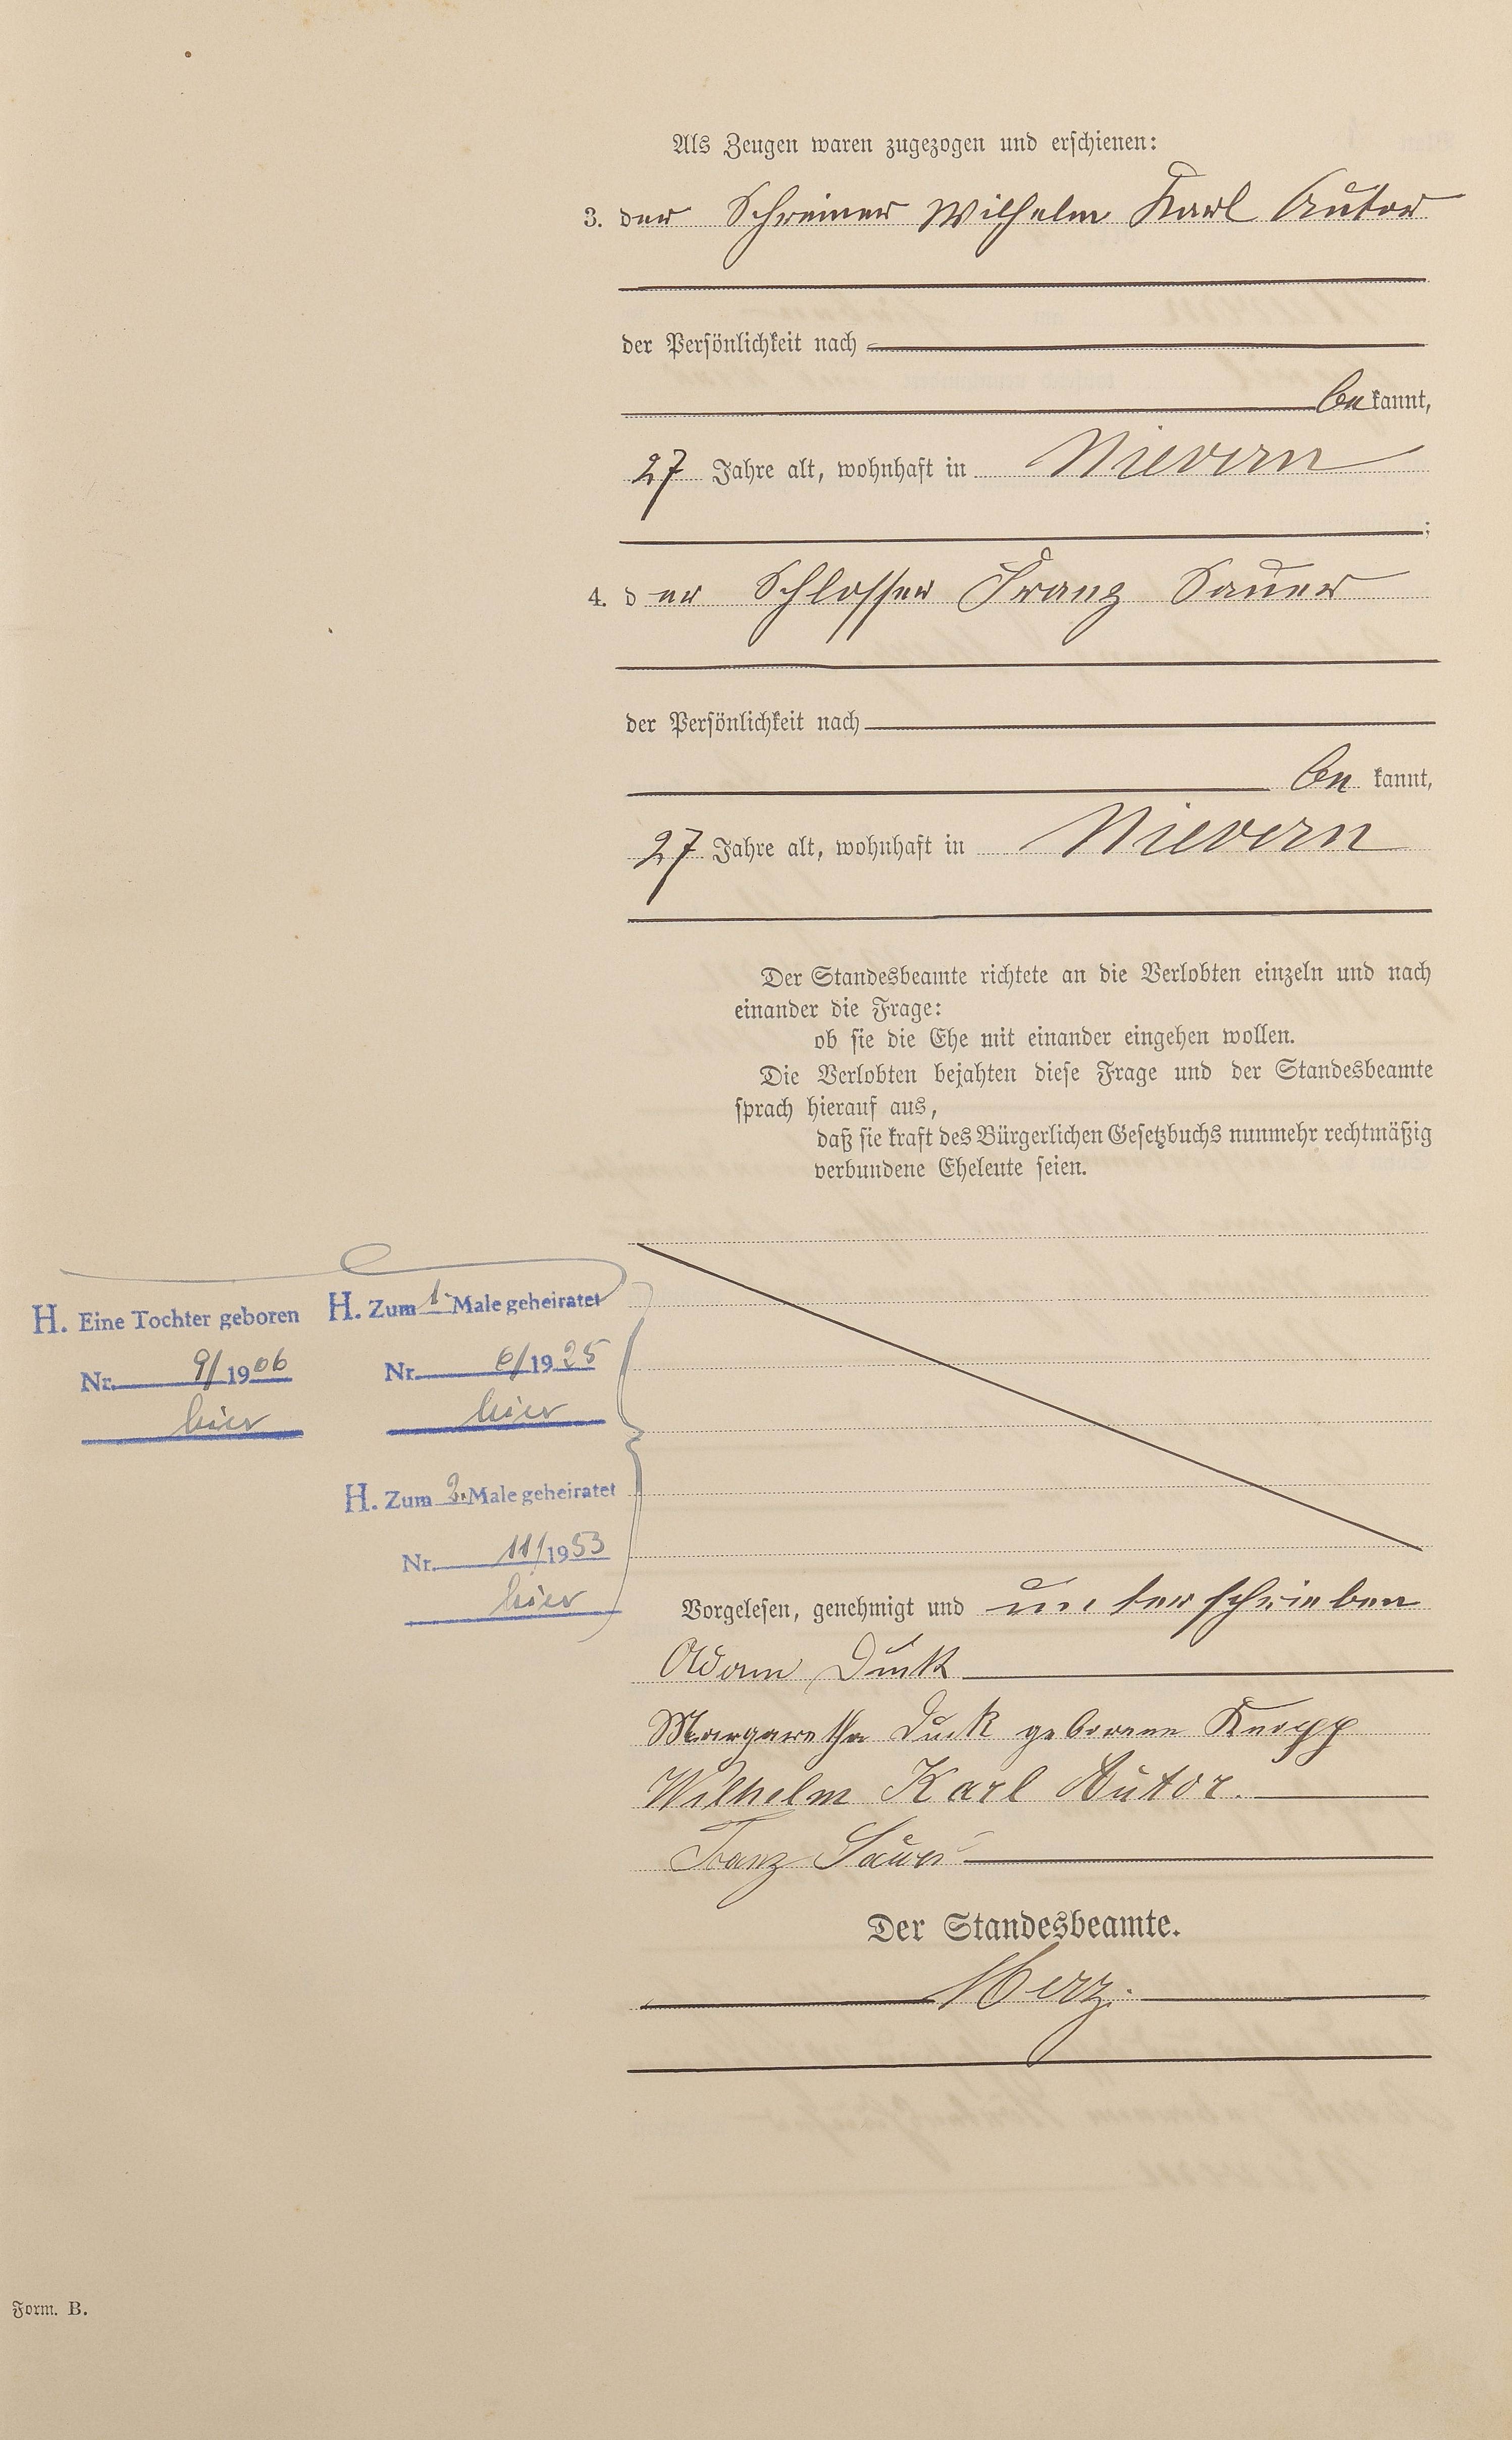 Als Zeugen waren zugezogen und erschienen:
3. der Schreiner Wilhelm Karl Autor
der Persönlichkeit nach
be kannt,
27 Jahre alt, wohnhaft in Nievern
;
4. d er Schlosser Franz Sauer
der Persönlichkeit nach
be kannt,
27 Jahre alt, wohnhaft in Nievern
Der Standesbeamte richtete an die Verlobten einzeln und nach
einander die Frage:
ob sie die Ehe mit einander eingehen wollen.
Die Verlobten bejahten diese Frage und der Standesbeamte
sprach hierauf aus,
daß sie kraft des Bürgerlichen Gesetzbuchs nunmehr rechtmäßig
verbundene Eheleute seien.
H. Eine Tochter geboren
Nr. 9/1906
hier
H. Zum 1. Male geheiratet
Nr. 6/1925
hier
H. Zum 2. Male geheiratet
Nr. 11/1953
hier
Vorgelesen, genehmigt und unterschrieben
Adam Duck
Margaretha Duck geborene Knopp
Wilhelm Karl Autor.
Franz Sauer
Der Standesbeamte.
Merz.
Form. B.